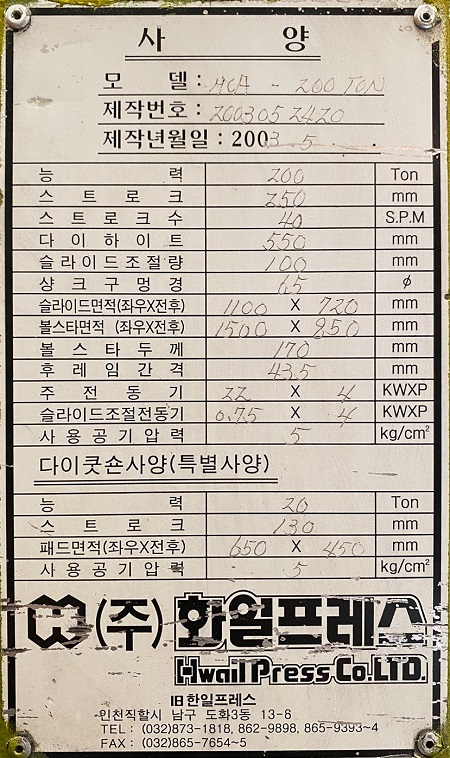 사 양
모 델 : HCA - 200 TON
제작번호 : 200305 2420
제작년월일 : 2003. 5 .
능 력 200 Ton
스 트 로 크 250 mm
스 트 로 크 수 40 S.P.M
다 이 하 이 트 550 mm
슬 라 이 드 조 절 량 100 mm
샹 크 구 멍 경 65 φ
슬라이드면적(좌우X전후) 1100 X 720 mm
볼스타면적 (좌우X전후) 1500 X 850 mm
볼 스 타 두 께 170 mm
후 레 임 간 격 435 mm
주 전 동 기 22 X 4 KWXP
슬라이드조절전동기 0.75 X 4 KWXP
사 용 공 기 압 력 5 kg/cm²
다이쿳숀사양(특별사양)
능 력 20 Ton
스 트 로 크 130 mm
패드면적(좌우X전후) 650 X 450 mm
사 용 공 기 압 력 5 kg/cm²
(주) 화일프레스
Hwail Press Co.LTD.
旧 한일프레스
인천직할시 남구 도화3동 13-8
TEL : (032)873-1818, 862-9898, 865-9393~4
FAX : (032)865-7654~5